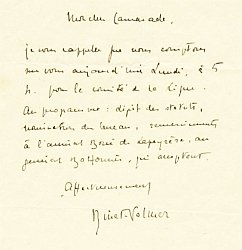 Mon cher Camarade,
je vous rappelle que nous comptons
sur vous aujourd'hui Lundi, à 5
h. pour le comité de la Ligue.
Au programme : dépôt des statuts,
nomination du bureau, remerciements
à l'amiral Boué de Lapeyrère, au
général Malleterre, qui acceptent.
Affectueusement
Binet-Valmer